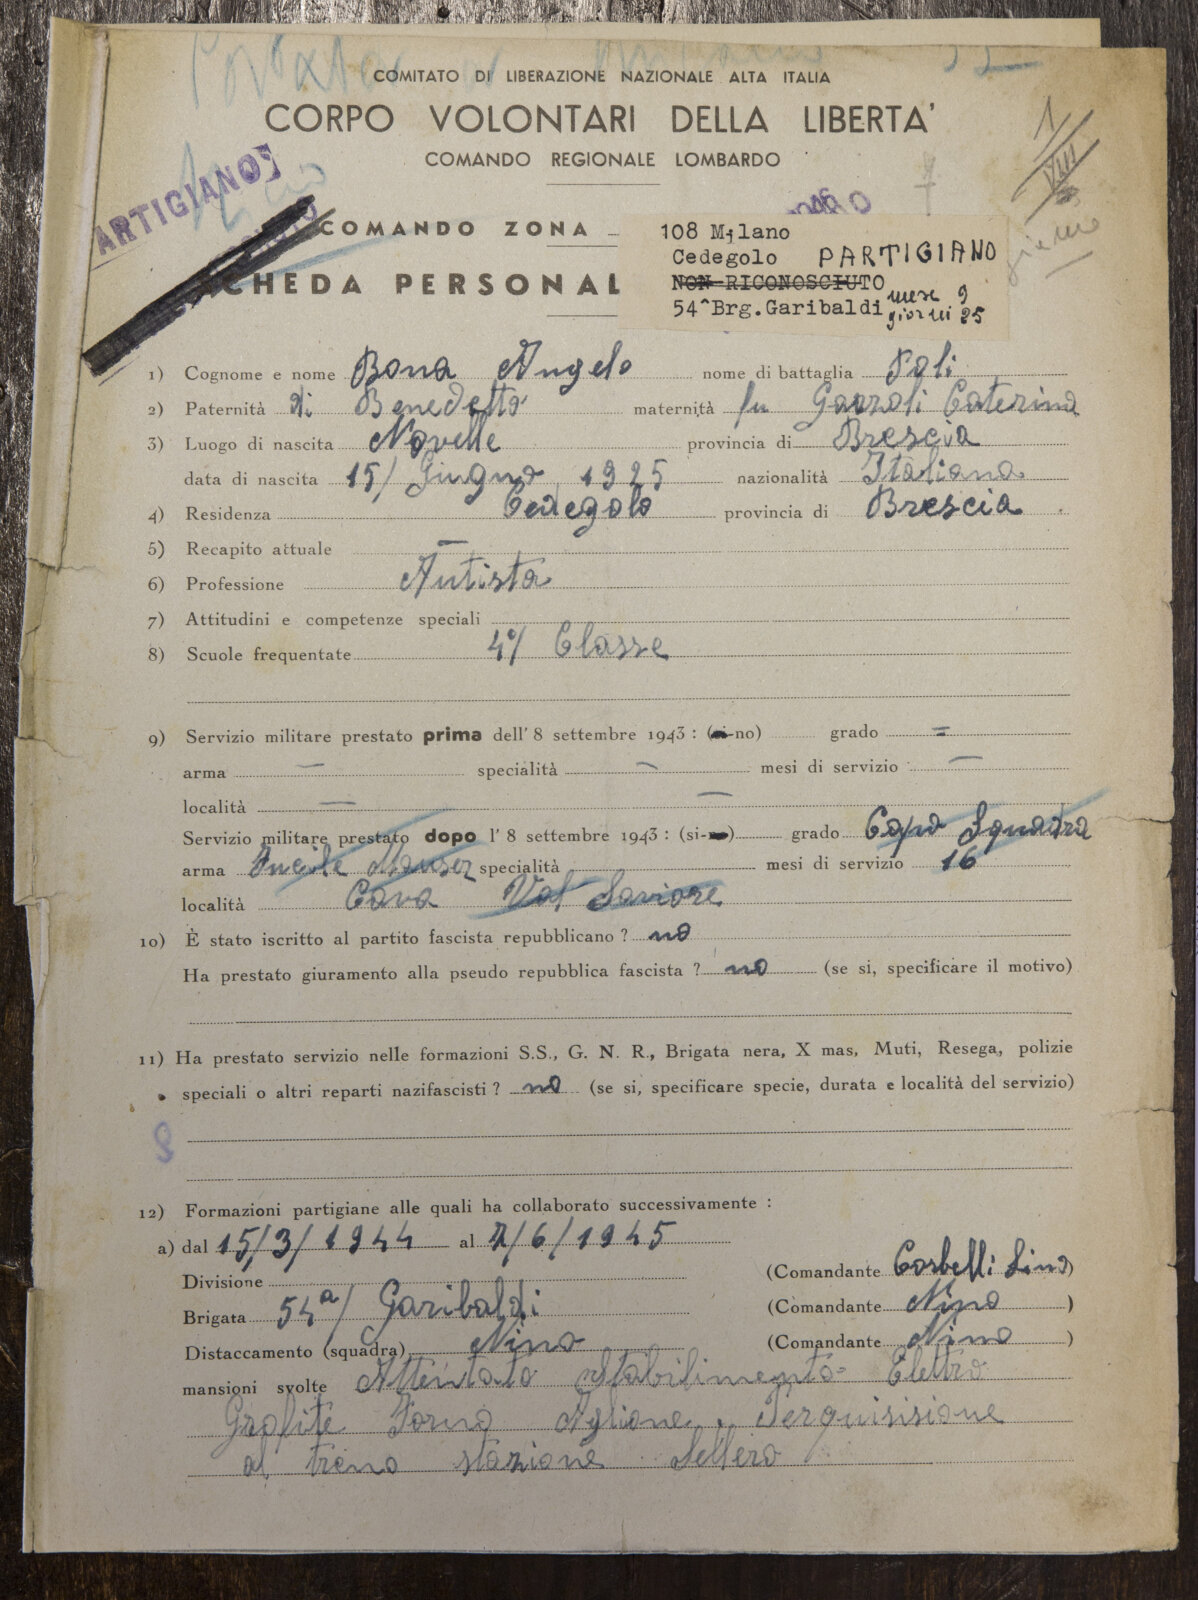 COMITATO DI LIBERAZIONE NAZIONALE ALTA ITALIA
CORPO VOLONTARI DELLA LIBERTA'
COMANDO REGIONALE LOMBARDO
ARTIGIANO
COMANDO ZONA
CHEDA PERSONAL
108 Milano
Cedegolo PARTIGIANO
NON RICONOSCIUTO
54^Brg.Garibaldi mese 9
giorni 25
1) Cognome e nome Bona Angelo nome di battaglia Poli
2) Paternità di Benedetto maternità fu Gazzoli Caterina
3) Luogo di nascita Novelle provincia di Brescia
data di nascita 15/ Giugno 1925 nazionalità Italiana
4) Residenza Cedegolo provincia di Brescia
5) Recapito attuale —
6) Professione Autista
7) Attitudini e competenze speciali
8) Scuole frequentate 4°/ Classe
9) Servizio militare prestato prima dell' 8 settembre 1943 : (si-no) grado =
arma — specialità — mesi di servizio —
località — —
Servizio militare prestato dopo l' 8 settembre 1943 : (si-no) grado Capo Squadra
arma Fucile Mauser specialità mesi di servizio 16
località Cava Val Saviore
10) È stato iscritto al partito fascista repubblicano ? no
Ha prestato giuramento alla pseudo repubblica fascista ? no (se si, specificare il motivo)
11) Ha prestato servizio nelle formazioni S.S., G. N. R., Brigata nera, X mas, Muti, Resega, polizie
speciali o altri reparti nazifascisti ? no (se si, specificare specie, durata e località del servizio)
12) Formazioni partigiane alle quali ha collaborato successivamente :
a) dal 15/3/1944 al 7/6/1945
Divisione (Comandante Corbelli Lino)
Brigata 54a/ Garibaldi (Comandante Nino )
Distaccamento (squadra) Nino (Comandante Nino )
mansioni svolte Attentato Stabilimento Elettro
Grafite Forno Aglione. Perquisisione
al treno stazione Sellero